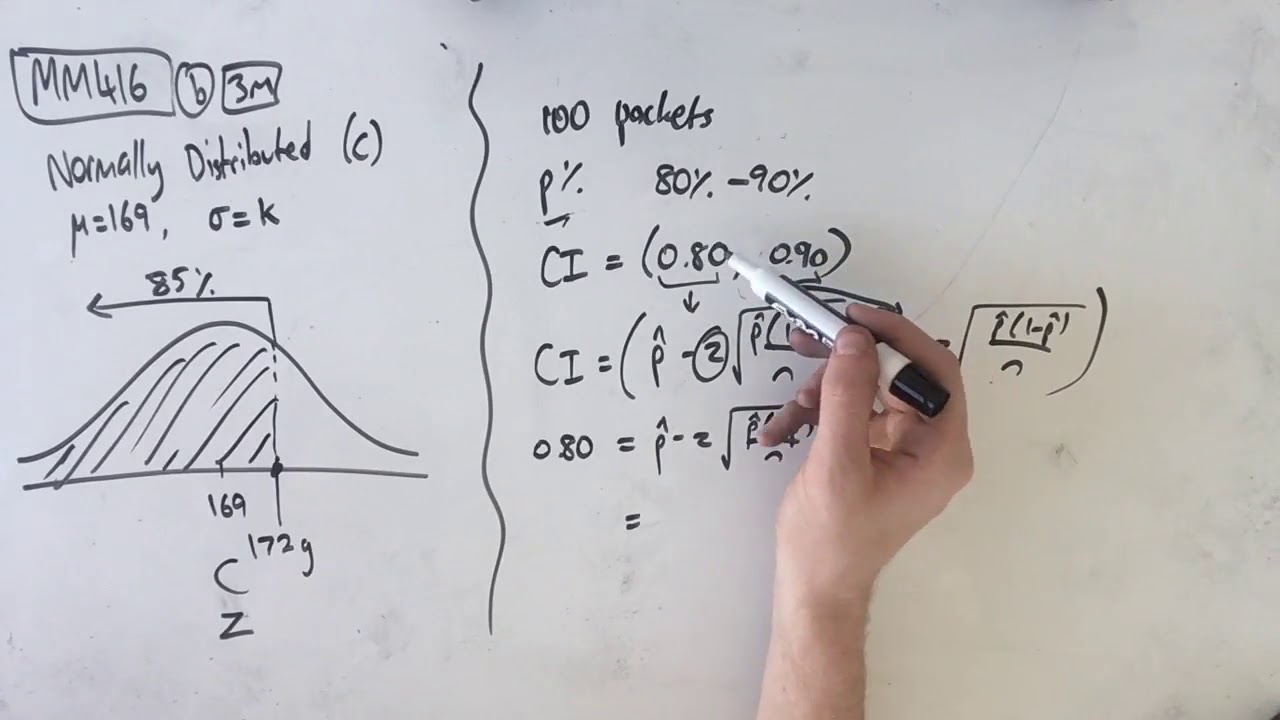 MM416 b 3M
Normally Distributed (C)
μ=169, σ=k
85%
169
172g
C
Z
100 packets
p% 80% - 90%
CI = (0.80, 0.90)
CI = (p̂ - z√p̂(1 √p̂(1-p̂)/n)
0.80 = p̂ - z√p̂(
=